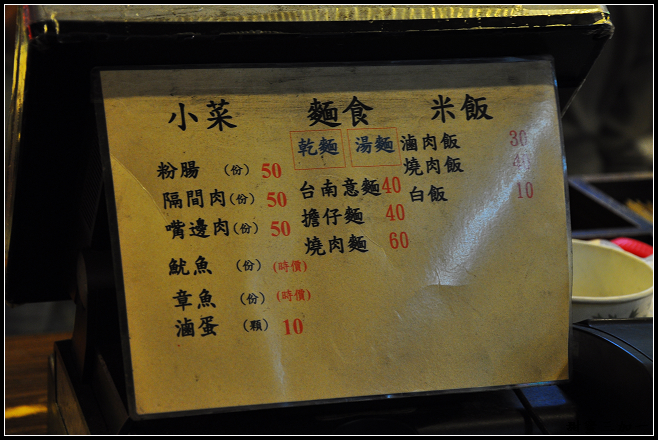 小菜
粉腸 (份) 50
隔間肉(份) 50
嘴邊肉(份) 50
魷魚 (份) (時價)
章魚 (份) (時價)
滷蛋 (顆) 10
麵食
乾麵 湯麵
台南意麵40
擔仔麵 40
燒肉麵 60
米飯
滷肉飯 30
燒肉飯
白飯 10